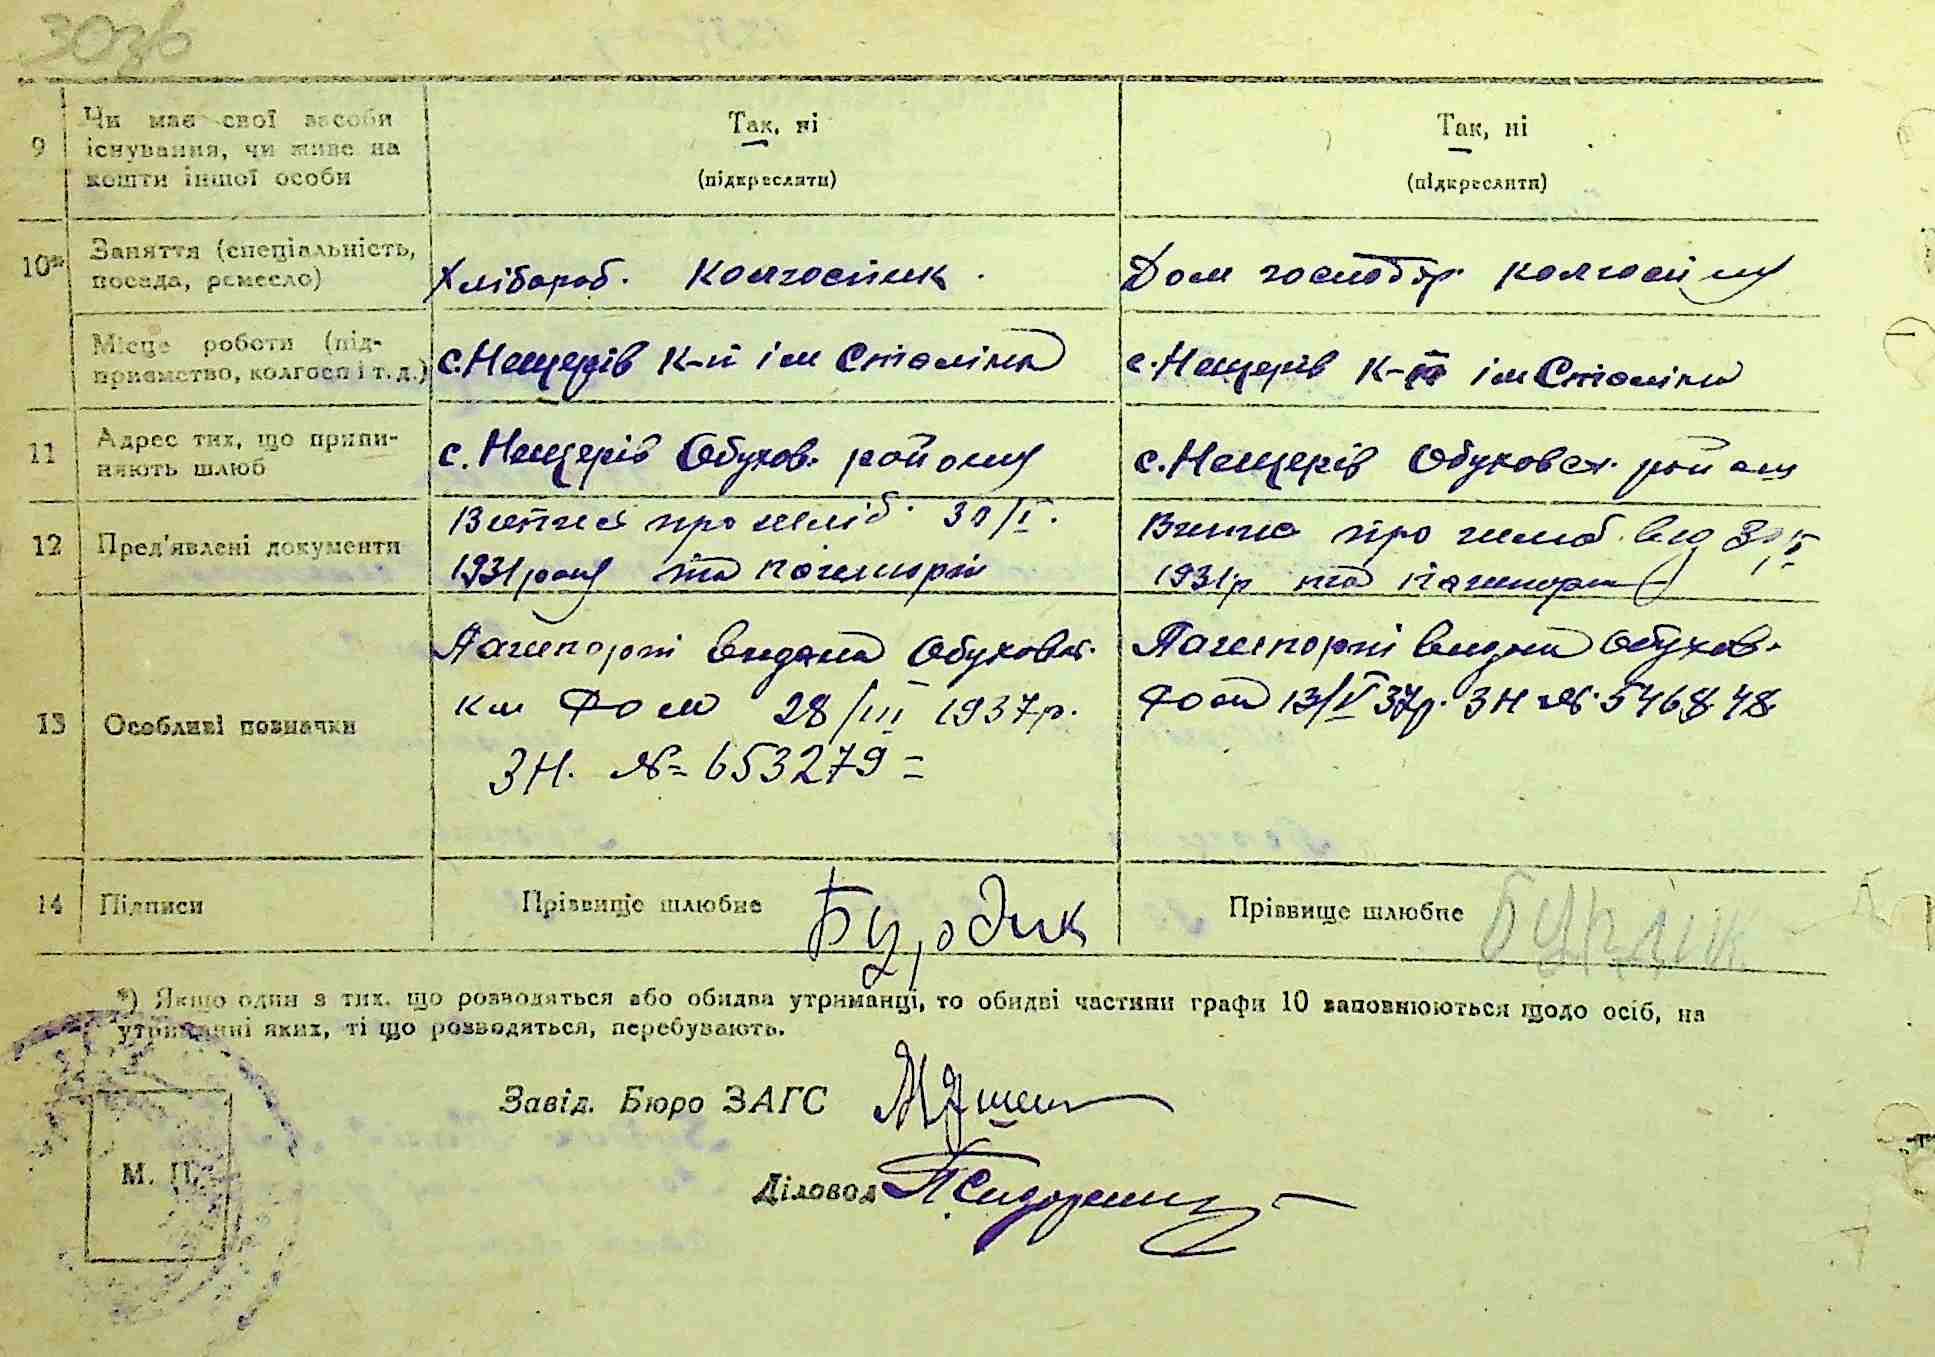 303б
9 Чи має свої засоби існування, чи живе на кошти іншої особи
Так, ні
(підкреслити)
Так, ні
(підкреслити)
10* Заняття (спеціальність, посада, ремесло)
Хлібороб. Колгоспник.
Дом господар.
Місце роботи (підприємство, колгосп і т. д.)
с. Нещерів К-п ім Сталіна
с. Нещерів ім Сталіна
11 Адрес тих, що припиняють шлюб
с. Нещерів Обухов. району
с. Нещерів Обуховск. району
12 Пред'явлені документи
про шлюб 30/I.
1931 року та пашпорт
про шлюб від
1931р та пашпорт
13 Особливі позначки
Пашпорт видана Обуховск.
28/III 1937р.
ЗН. № 653279 =
Пашпорт видан Обухов.
13/V 37р. ЗН № 546848
14 Підписи
Прізвище шлюбне Бурдик
Прізвище шлюбне
*) Якщо один з тих, що розводяться або обидва утриманці, то обидві частини графи 10 заповнюються щодо осіб, на
утриманні яких, ті що розводяться, перебувають.
Завід. Бюро ЗАГС
М. П.
Діловод